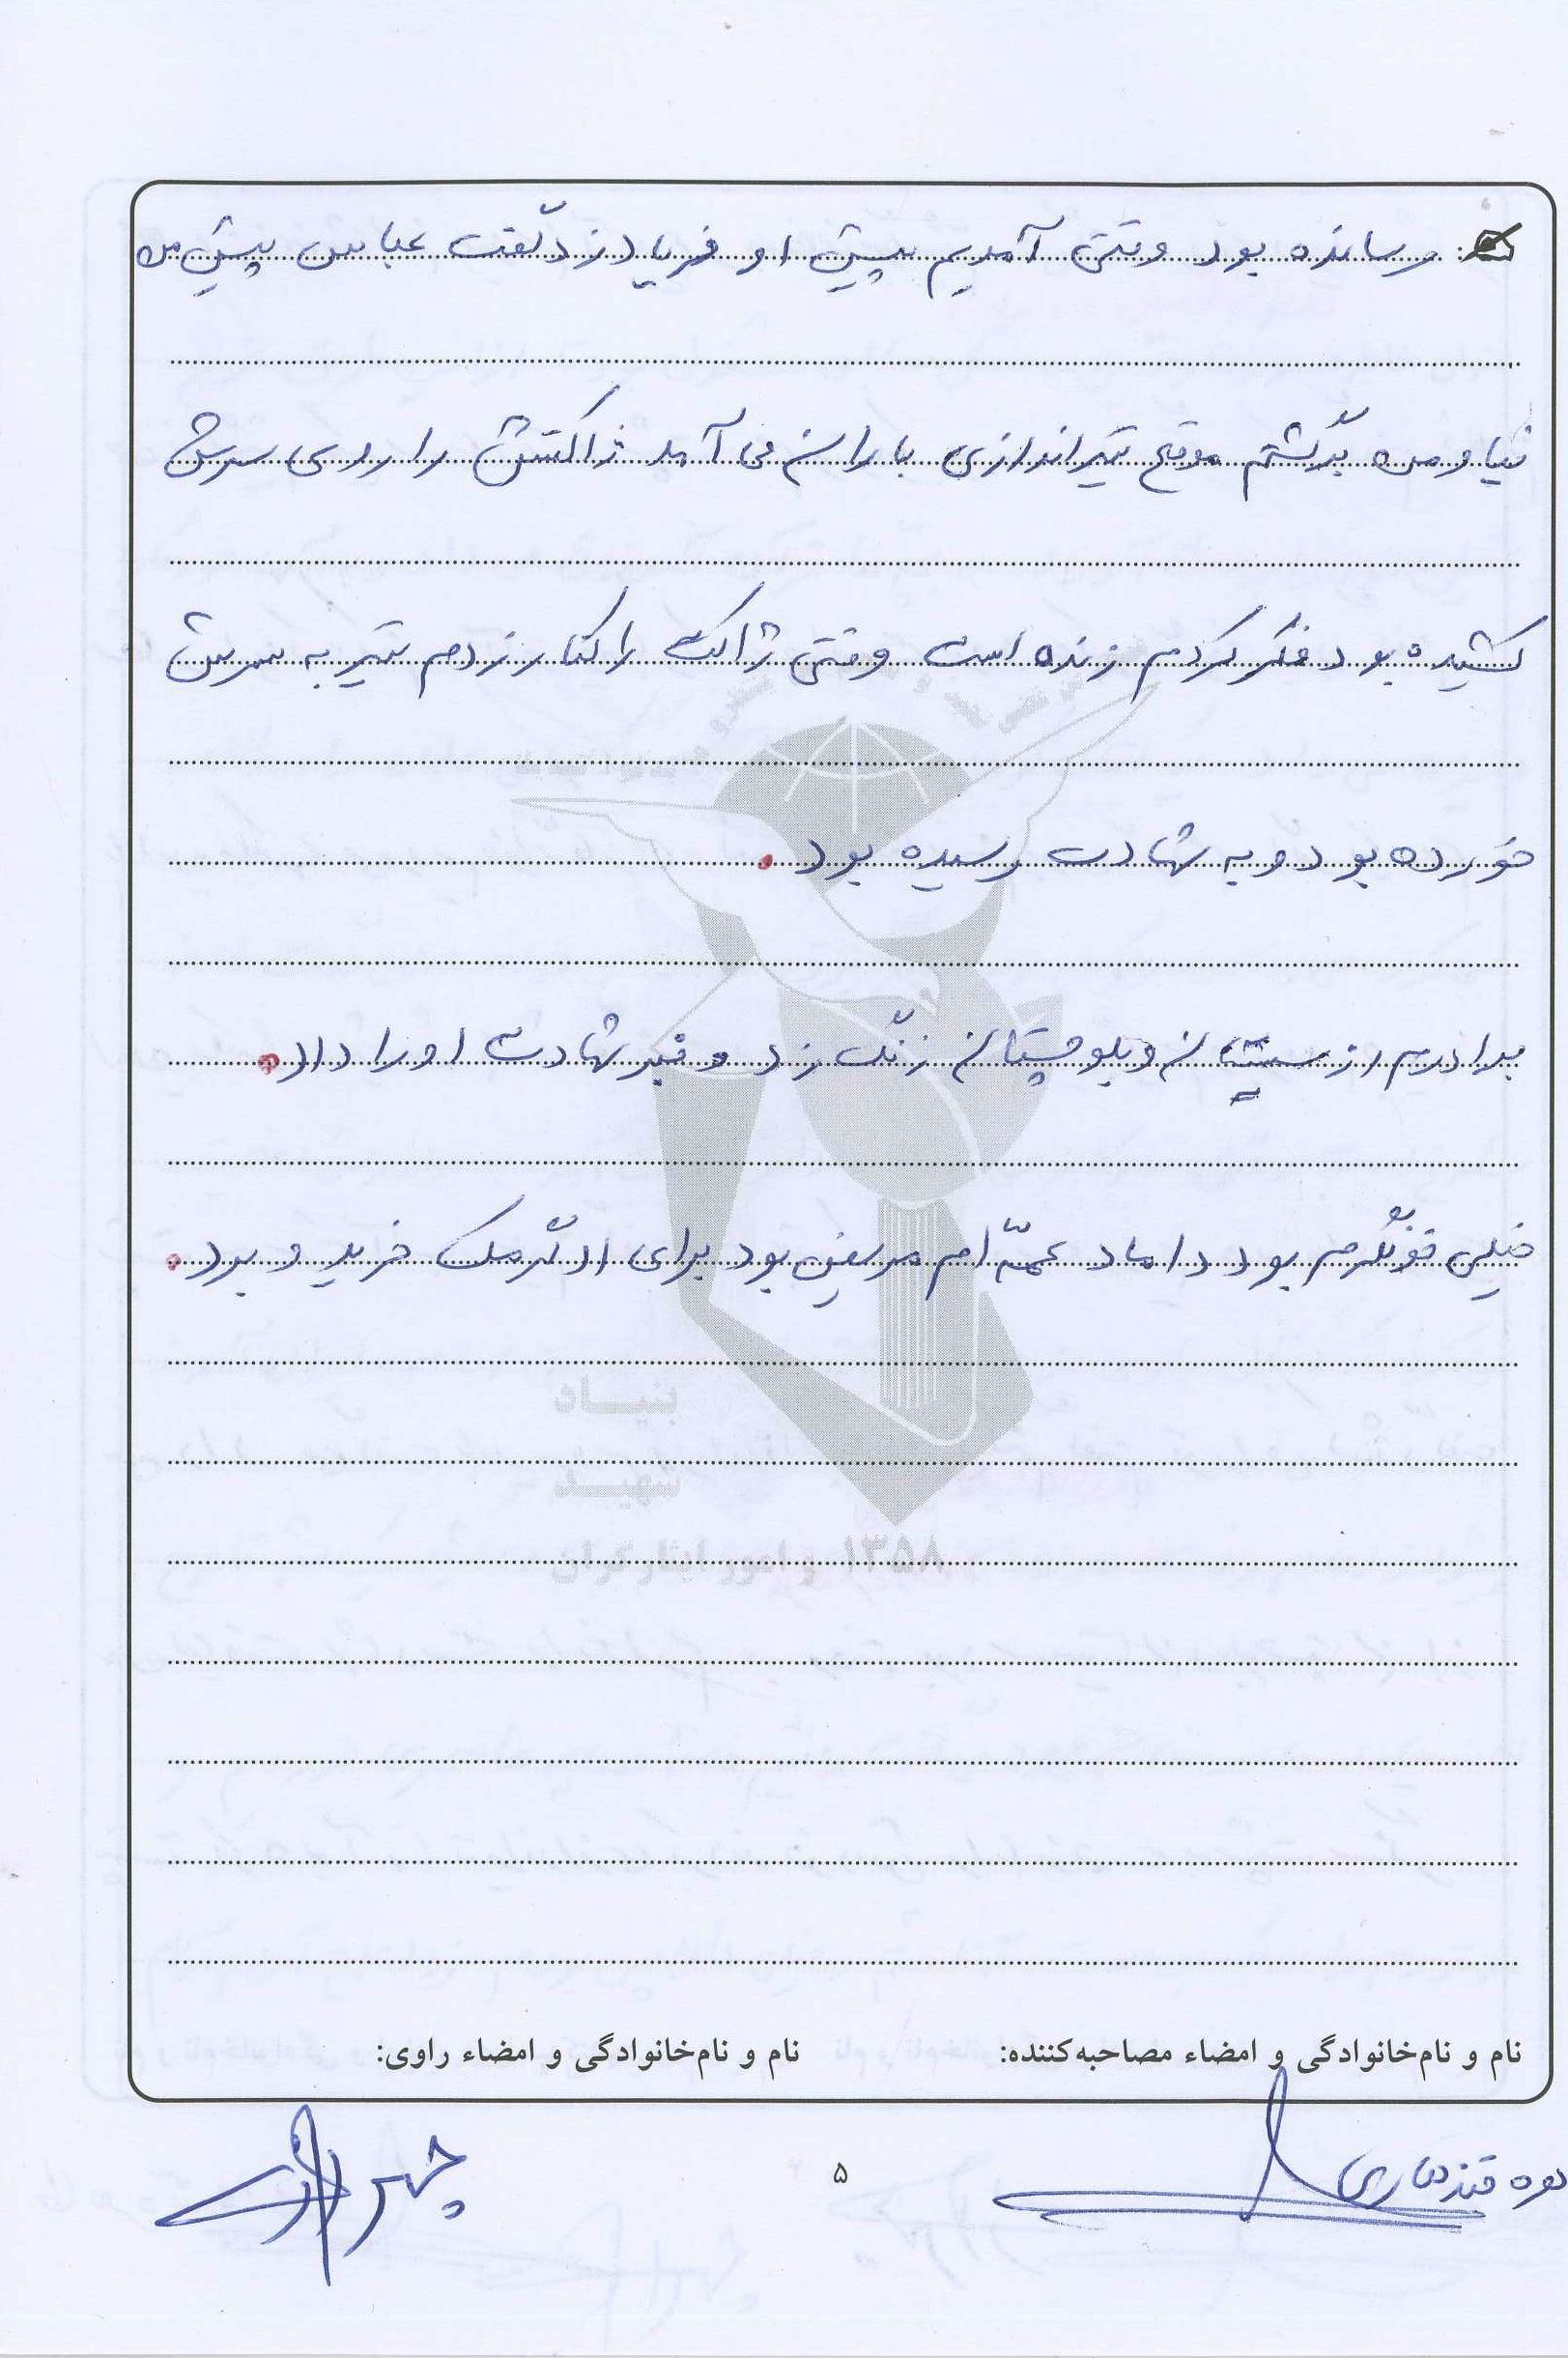 رسانده بود وقتی آمدیم پیش او فریاد زد گفت عباس پیش من
نیا و من برگشتم موقع تیراندازی باران می آمد ژاکتش را روی سرش
کشیده بود فکر کردم زنده است وقتی ژاکت را کنار زدم تیر به سرش
خورده بود و به شهادت رسیده بود.
برادرم از سیستان و بلوچستان زنگ زد و خبر شهادت او را داد.
خیلی خونگرم بود داماد عمّه ام مریض بود برای او گرمک خرید و برد.
بنیاد
شهید
و امور ایثارگران ۱۳۵۸
نام و نام‌خانوادگی و امضاء مصاحبه‌کننده:
نام و نام‌خانوادگی و امضاء راوی:
قندهاری
۵